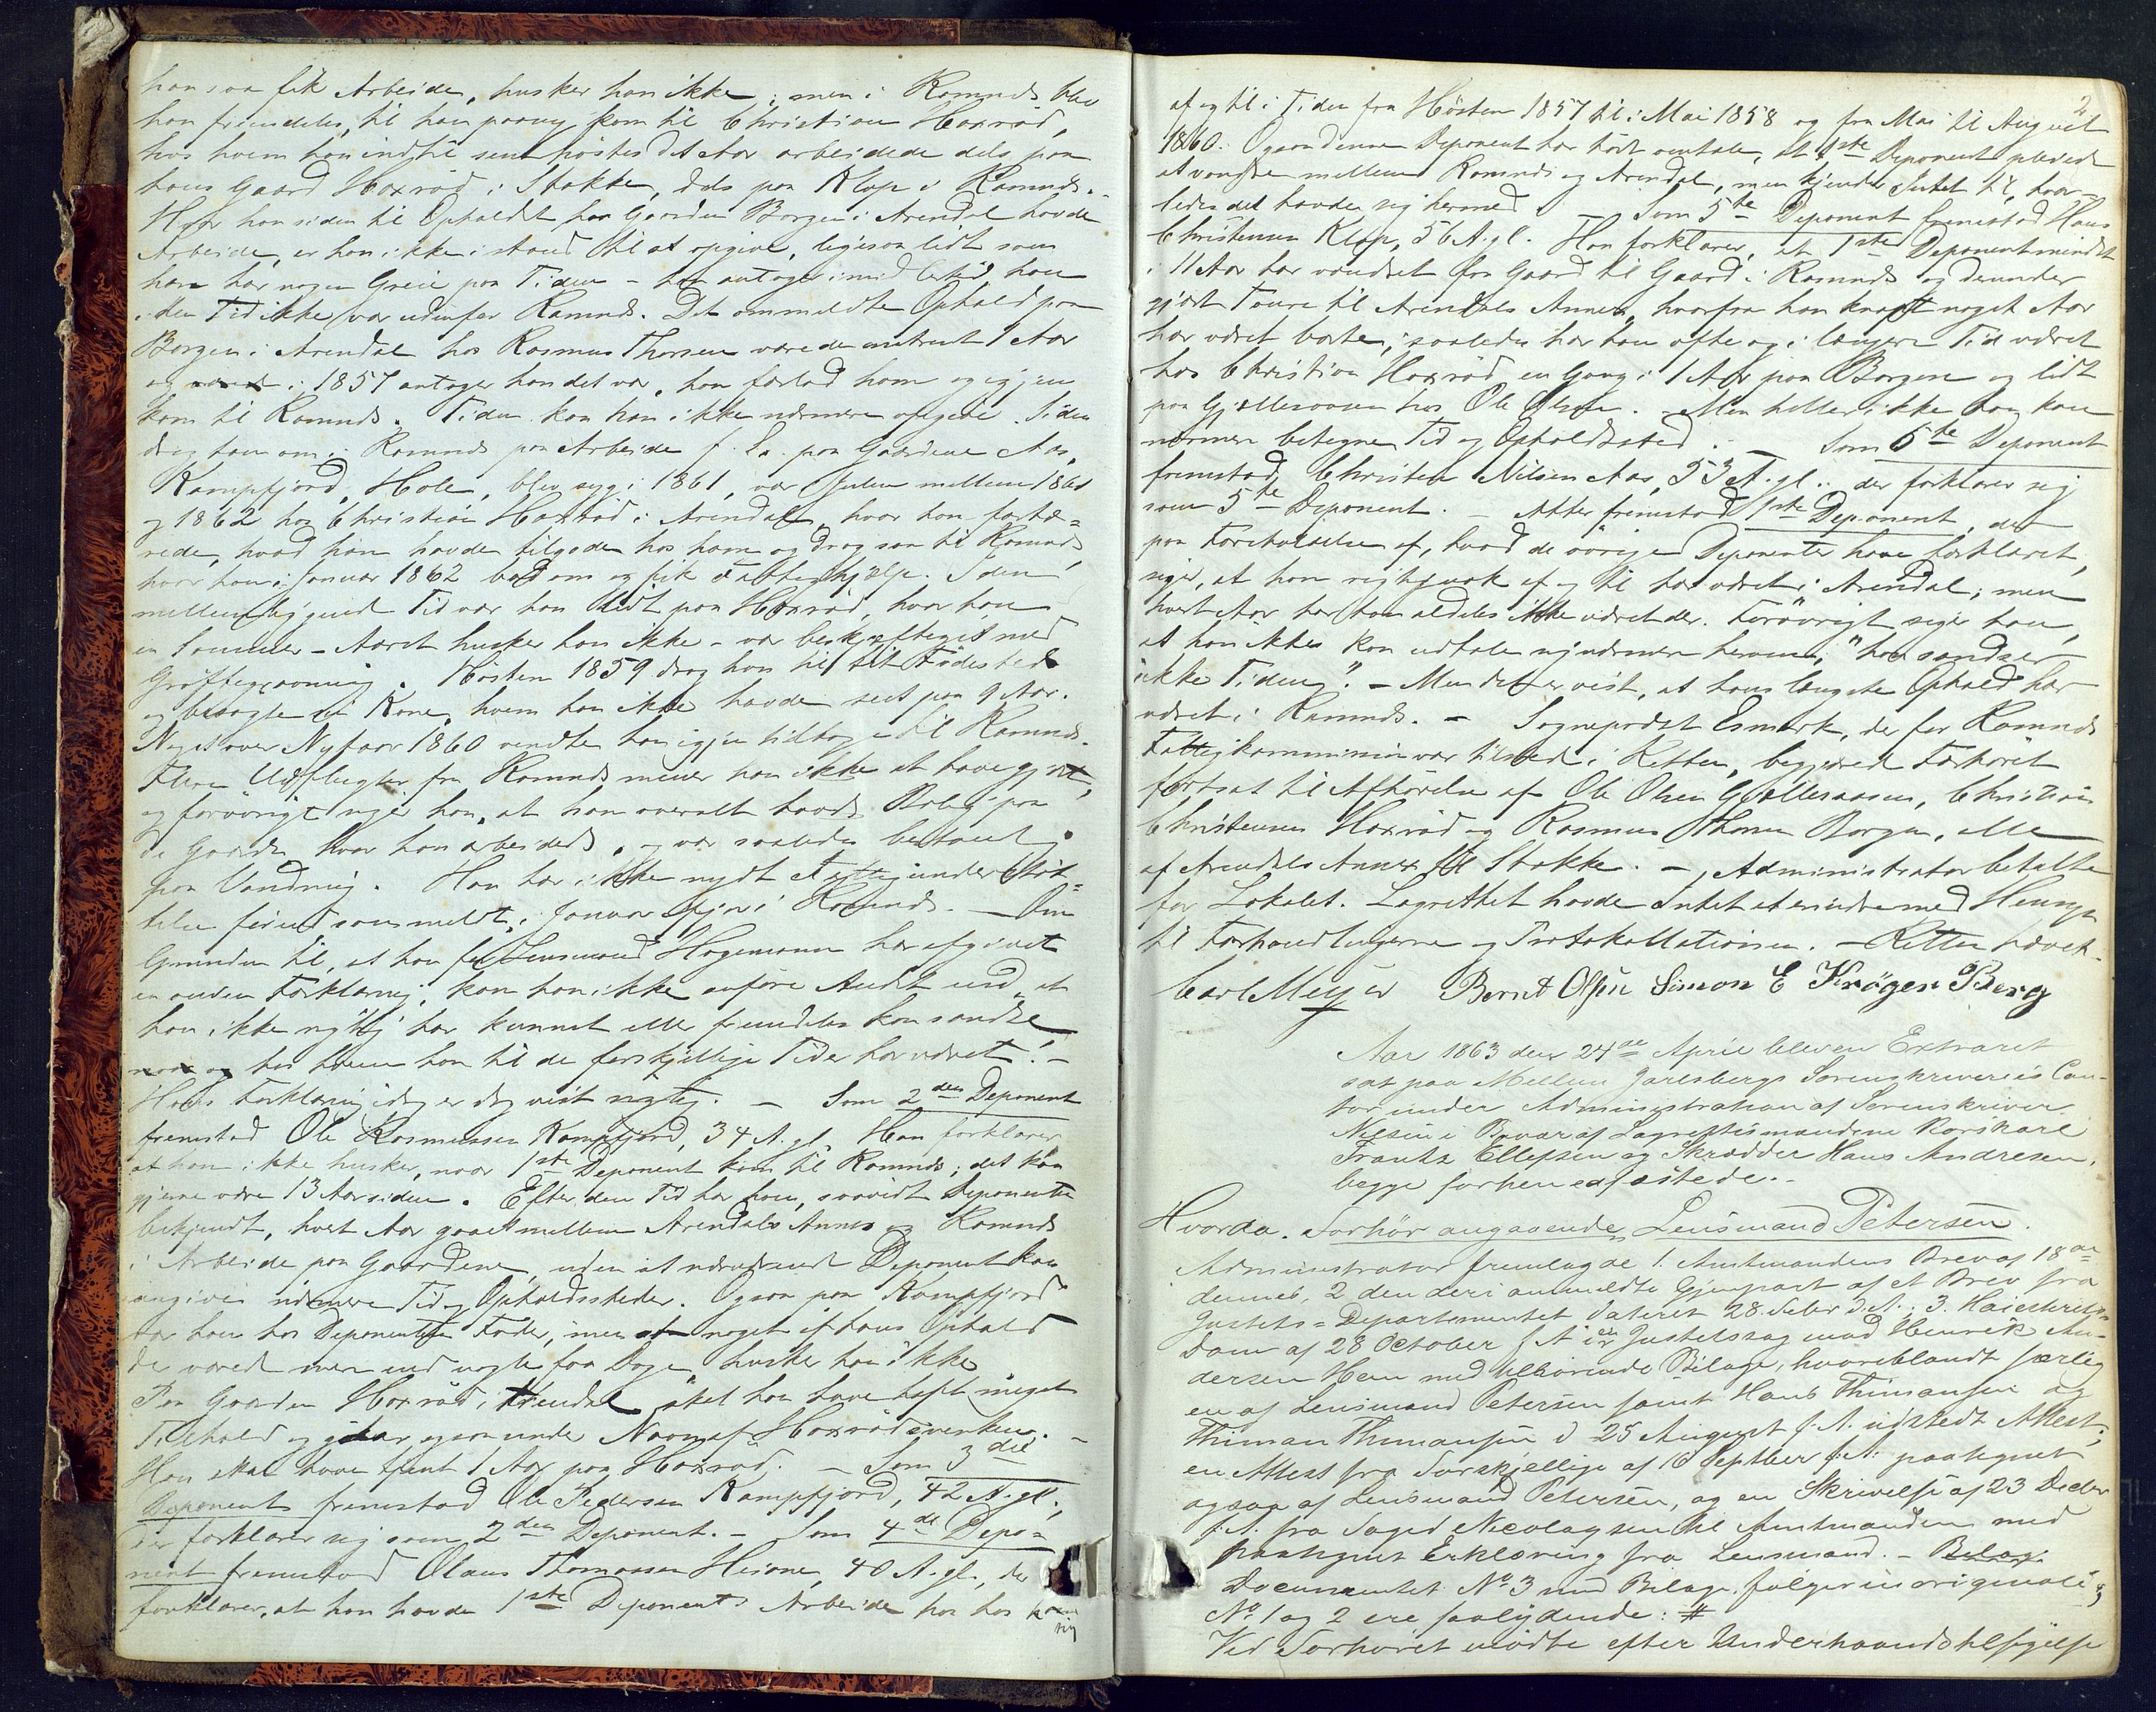 han saa fik Arbeide, husker han ikke; men i Ramnæs blev
han fremdeles, til han paany kom til Christian Haxrød,
hos hvem han indtil sent høstes det Aar arbeidede dels paa
hans Gaard Haxrød i Stokke, dels paa Klop i Ramnæs.
Hvor han siden til Opholdet paa Gaarden Borgen i Arendal havde
Arbeide, er han ikke i stand til at opgive, ligesaa lidt som
han har nogen Greie paa Tiden – han antager imidlertid, han
i den Tid ikke var udenfor Ramnæs. Det ommeldte Ophold paa
Borgen i Arendal hos Rasmus Thorsen varede omtrent 1 Aar
og i 1857 antager han det var, han forlod ham og igjen
kom til Ramnæs. Tiden kan han ikke nærmere opgive. Siden
drog han om i Ramnæs paa Arbeide f. Ex. paa Gaardene Aas,
Kampfjord, Hole, blev syg i 1861, var Julen mellem 1861
og 1862 hos Christian Haxrød i Arendal, hvor han fortæ-
rede, hvad han havde tilgode hos ham og drog saa til Ramnæs,
hvor han i Januar 1862 bad om og fik Fattighjælp. I den
mellemliggende Tid var han lidt paa Haxrød, hvor han
en Sommer – Aaret husker han ikke – var beskjæftiget med
Grøftegravning. Høsten 1859 drog han til sit Fødested
og besøgte sin Kone, hvem han ikke havde seet paa 9 Aar.
Noget over Nytaar 1860 vendte han igjen tilbage til Ramnæs.
Flere Udflugter fra Ramnæs mener han ikke at have gjort,
og forøvrigt siger han, at han overalt havde Bolig paa
de Gaarde hvor han arbeidede, og var saaledes bestandig
paa Vandring. Han har ikke nydt Fattigunderstøt-
telse førend som meldt i Januar ifjor i Ramnæs. – Om
Grunden til, at han for Lensmand Hagemann har afgivet
en anden Forklaring, kan han ikke anføre Andet end „at
han ikke rigtig har kunnet eller fremdeles kan sandse
naar og hos hvem han til de forskjellige Tider har været". –
Hans Forklaring idag er dog vist rigtig. – Som 2den Deponent
fremstod Ole Rasmussen Kampfjord, 34 A. gl. Han forklarer
at han ikke husker, naar 1ste Deponent kom til Ramnæs; det kan
gjerne være 13 Aar siden. Efter den Tid har han, saavidt Deponenten
bekjendt, hvert Aar gaaet mellem Arendals Annex og Ramnæs
i Arbeide paa Gaardene, uden at nærværende Deponent kan
angive nærmere Tid og Opholdssteder. Ogsaa paa Kampfjord
var han hos Deponentens Fader, men at noget af hans Ophold
der varede mer end nogle faa Dage husker han ikke
Paa Gaarden Haxrød i Arendal skal han have havt meget
Tilhold og gaar ogsaa under Navn af Haxrødsvensken. –
Han skal have tjent 1 Aar paa Haxrød. – Som 3die
Deponent fremstod Ole Pedersen Kampfjord, 42 A. gl.,
der forklarer sig som 2den Deponent. – Som 4de Depo-
nent fremstod Olaus Thomassen Heione, 40 A. gl., der
forklarer, at han havde 1ste Deponent i Arbeide hos
sig
2
af og til i Tiden fra Høsten 1857 til i Mai 1858 og fra Mai til August
1860. Ogsaa denne Deponent har hørt omtale, at 1ste Deponent pleiede
at vandre mellem Ramnæs og Arendal, men kjender Intet til, hvor-
ledes det havde sig hermed. Som 5te Deponent fremstod Hans
Christensen Klop, 56 A. gl. Han forklarer, at 1ste Deponent mindst
i 11 Aar har vandret fra Gaard til Gaard i Ramnæs og derunder
gjort Toure til Arendals Annex, hvorfra han knapt noget Aar
har været borte; saaledes har han ofte og i længere Tid været
hos Christian Haxrød en Gang i 1 Aar paa Borgen og lidt
paa Gjelleraasen hos Ole Olsen. – Men heller ikke han kan
nærmere betegne Tid og Opholdssted. – Som 6te Deponent
fremstod Christen Nilsen Aas, 53 A. gl. der forklarer sig
som 5te Deponent. – Atter fremstod 1ste Deponent, der
paa Foreholdelse af, hvad de øvrige Deponenter have forklaret,
siger, at han rigtignok af og til har været i Arendal; men
hvert Aar har han aldeles ikke været der. Forøvrigt siger han,
at han ikke kan udtale sig nærmere herom, „han sandser
ikke Tiden". – Men det er vist, at hans længste Ophold har
været i Ramnæs. – Sogneprest Esmark, der for Ramnæs
Fattigkommission var tilstede i Retten, begjærede Forhøret
fortsat til Afhørelse af Ole Olsen Gjelleraasen, Christian
Christensen Haxrød og Rasmus Thorsen Borgen, alle
af Arendals Annex til Stokke. – Administrator betalte
for Lokalet. Lagrettet havde Intet at erindre med Hensyn
til Forhandlingerne og Protokollationen. – Retten hævet.
Carl Meyer Bernt Olsen Simon E Krøger Berg
Aar 1863 den 24de April blev en Extraret
sat paa Mellem Jarlsbergs Sorenskriveries Con-
tor under Administration af Sorenskriver
Nilsen i Overvær af Lagrettesmændene Korskarl
Frantz Ellefsen og Skrædder Hans Andresen,
begge forhen edfæstede.
Hvorda. Forhør angaaende Lensmand Petersen.
Administrator fremlagde 1. Amtmandens Brev af 18de
dennes, 2 den deri anmeldte Gjenpart af et Brev fra
Justits-Departementet dateret 28. Febr d.A. 3. Høiesterets-
Dom af 28 October f A i en Justitssag mod Henrik An-
dersen Hem med tilhørende Bilage, hvoriblandt særlig
en af Lensmand Petersen samt Hans Thimansen og
Thiman Thimansen d 25 August f. A. udstedt Attest,
en Attest fra Forskjellige af 6 Septber f.A. paategnet
ogsaa af Lensmand Petersen, og en Skrivelse af 23 Decbr
f.A. fra Foged Nicolaysen til Amtmanden med
paategnet Erklæring fra Lensmand. – Bilag.
Documentet No 3 med Bilage følger in originali og
No 1 og 2 ere saalydende: #
Ved Forhøret mødte efter Underhaandstilsigelse